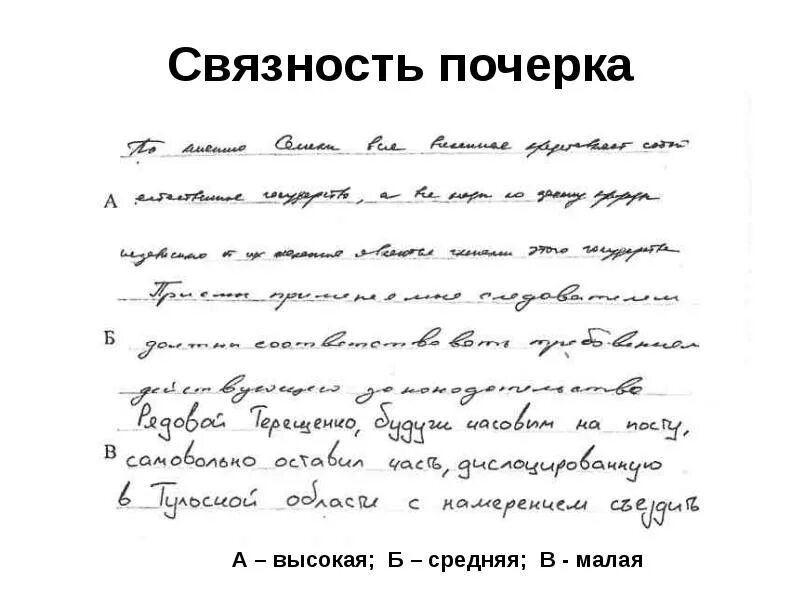 Связность почерка
По мнению Сенеки все вселенное представляет собой
А естественное государство, а все люди по закону природы
независимо от их желания являются членами этого государства
Приемы применяемые следователем
Б должны соответствовать требованием
действующего законодательства
Рядовой Терещенко, будучи часовым на посту,
В самовольно оставил часть, дислоцированную
в Тульской области с намерением съездить
А – высокая; Б – средняя; В - малая